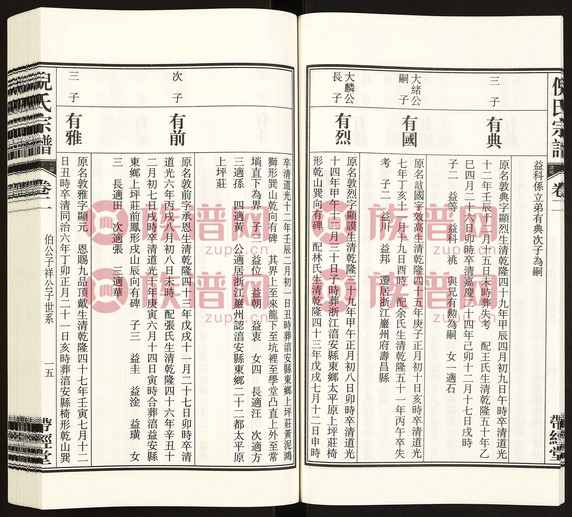 倪氏宗譜
卷二
帶經堂
益科係立弟有典次子為嗣
三子
有典
原名敦典字顯烈生清乾隆四十九年甲辰四月九日午時卒清道光
十二年壬辰十一月十五日未時葬失考 配王氏生清乾隆五十年乙
巳四月二十六日卯時卒清嘉慶二十二年丁丑十二月十七日戌時
子二 益等 益科 祧 與兄有勲為嗣 女一 適石
大緒公
嗣子
有國
原名敔國字效高生清乾隆四十五年庚子正月初十日亥時卒清道光
七年丁亥十一月十九日酉時 配余氏生清乾隆五十一年丙午卒失
考 子二 益川 益邦 遷居浙江嚴州府壽昌縣
大麟公
長子
有烈
原名敦烈字顯謨生清乾隆三十九年甲午正月初八日卯時卒清道光
十四年甲午十一月三十日子時葬浙江湻安縣東鄉太平原上坪莊椅
形乾山巽向有碑 配林氏生清乾隆四十三年戊戌七月十二日申時
卒清道光十二年壬辰二月初一日丑時葬湻安縣東鄉上坪莊黃泥鴻
獅形巽山乾向有碑 其界上至來龍下至坑裡至學堂凸直上外至常
塆直下為界 子三 益位 益朝 益衷 女四 長適汪 次適方
三適孫 四適黃 公適居浙江嚴州認湻安縣東鄉二十二都太平原
上坪莊
次子
有前
原名敦前字承恩生清乾隆四十三年戊戌十一月二十七日卯時卒清
道光六年丙戌八月初八日卯時 配張氏生清乾隆四十六年辛丑十
二月初七日戌時卒清道光二十二年壬寅六月十四日寅時合葬湻益安縣
東鄉上坪莊前鳳形戌山辰向有碑 子三 益圭 益淦 益璜 女
三 長適田 次適張 三適華
三子
有雅
原名敦雅字顯元 恩賜九品頂戴生清乾隆四十七年壬寅七月十二
日丑時卒清同治六年丁卯正月二十一日亥時葬湻安縣椅形乾山巽
倪氏宗譜
卷二
伯公子祥公子世系
一五
帶經堂
族譜网
zupu.cn